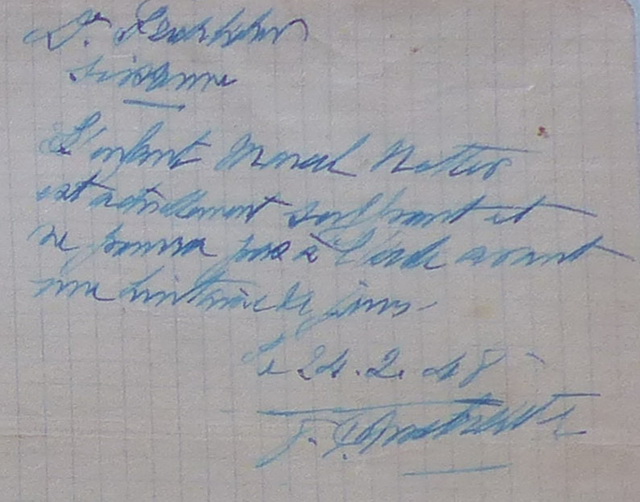 Dr
L'enfant Marcel
est actuellement souffrant et
ne pourra pas à l'école avant
une huitaine de jours.
Le 24.2.48